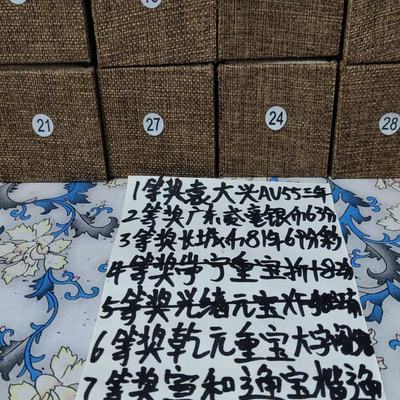 21
27
24
28
1等奖袁大头AU55三年
2等奖广东毫银币63分
3等奖长城币81年69分
4等奖崇宁重宝折十82
5等奖光绪元宝
6等奖乾元重宝大字
7等奖宣和通宝楷通